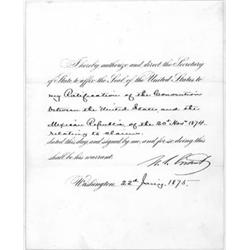 I hereby authorize and direct the Secretary
of State to affix the Seal of the United States to
my Ratification of the Convention
between the United States and the
Mexican Republic of the 20th Novr 1874.
relating to claims.
dated this day and signed by me, and for so doing this
shall be his warrant.
U. S. Grant
Washington, 22d Jany. 1875.